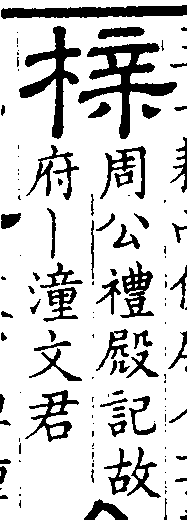 榟
周公禮殿記故
府丨潼文君